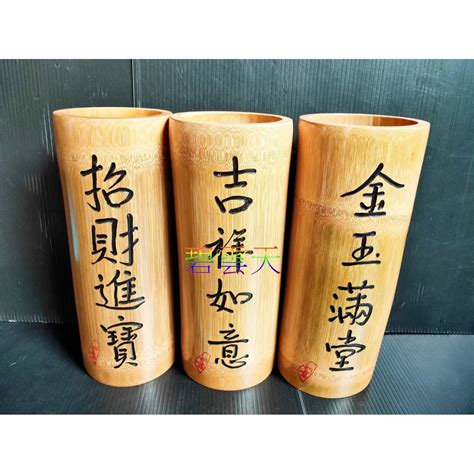 招財進寶
吉祥如意
金玉滿堂
碧雲天